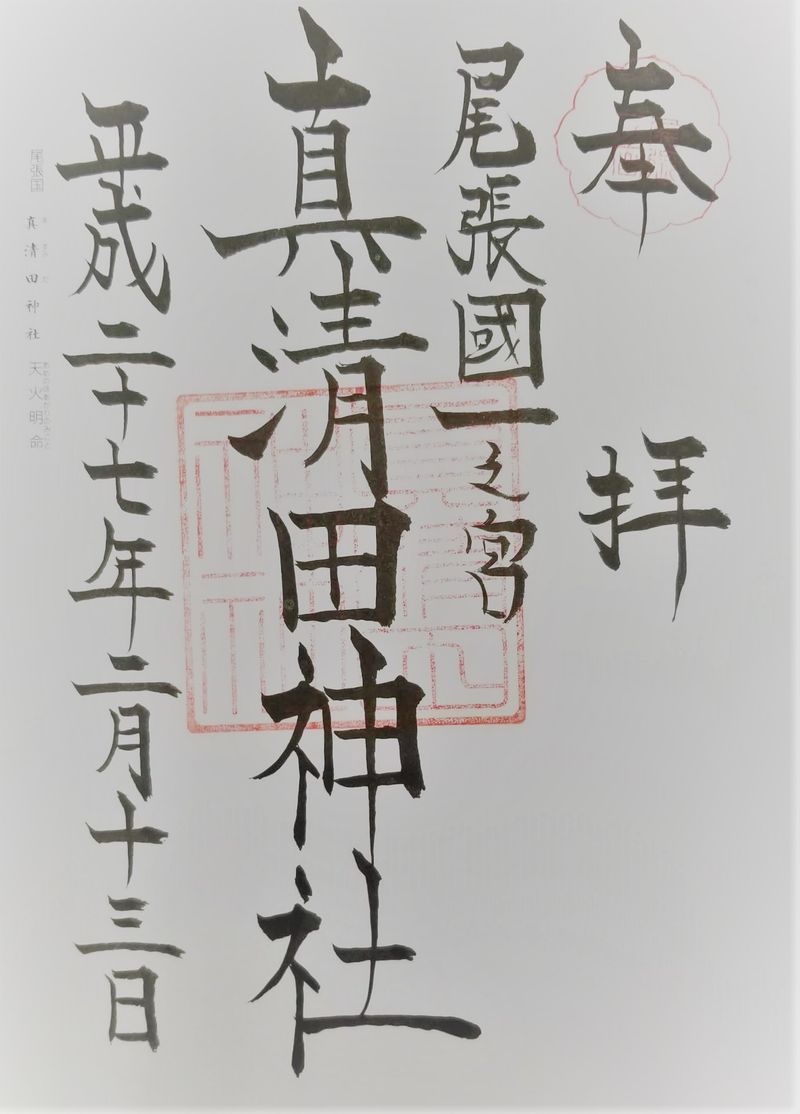 奉拝
尾張國一之宮
真清田神社
平成二十七年二月十三日
尾張国 真清田神社 天火明命